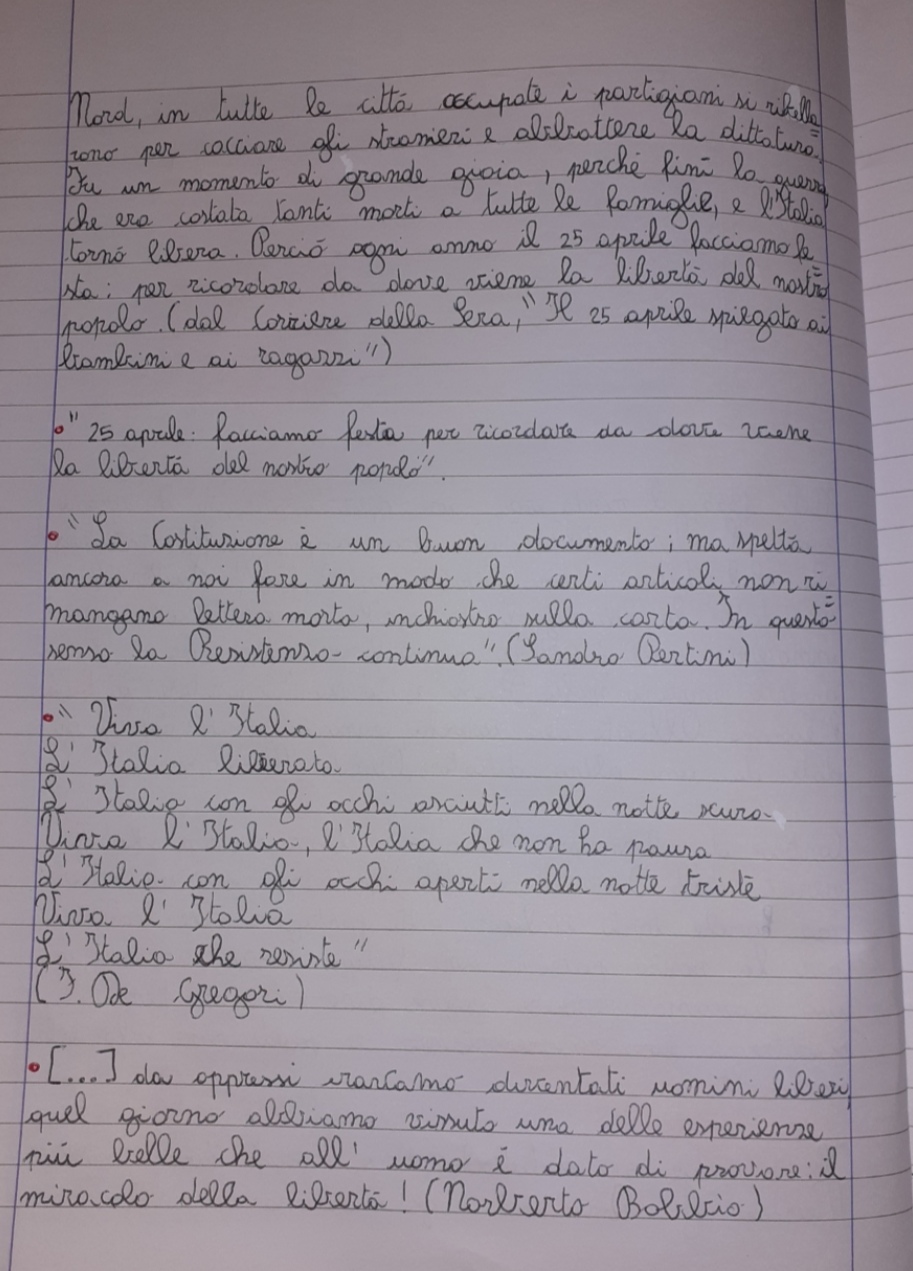 Nord, in tutte le città occupate i partigiani si ribella
rono per cacciare gli stranieri e abbattere la dittatura.
Fu un momento di grande gioia, perché finì la guerra
che era costata tanti morti a tutte le famiglie, e l'Italia
tornò libera. Perciò ogni anno il 25 aprile facciamo fe
sta: per ricordare da dove viene la libertà del nostro
popolo. (dal Corriere della Sera, "Il 25 aprile spiegato ai
bambini e ai ragazzi")
• "25 aprile: facciamo festa per ricordare da dove viene
la libertà del nostro popolo".
• "La Costituzione è un buon documento; ma spetta
ancora a noi fare in modo che certi articoli non ri=
mangano lettera morta, inchiostro sulla carta. In questo
senso la Resistenza continua". (Sandro Pertini)
• "Viva l'Italia
L'Italia liberata
L'Italia con gli occhi asciutti nella notte scura
Viva l'Italia, l'Italia che non ha paura
L'Italia con gli occhi aperti nella notte triste
Viva l'Italia
L'Italia che resiste"
(F. De Gregori)
• [...] da oppressi eravamo diventati uomini liberi
quel giorno abbiamo vissuto una delle esperienze
più belle che all'uomo è dato di provare: il
miracolo della libertà! (Norberto Bobbio)